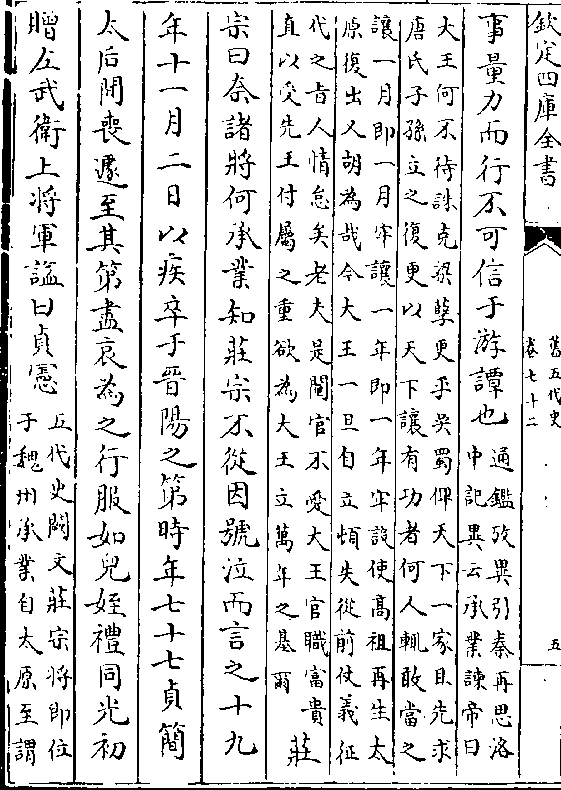 欽定四庫全書
舊五代史
卷七十二
五
事量力而行不可信于游譚也
通鑑攷異引秦再思洛
中記異云承業諫帝曰
大王何不待誅克梁孽更平吳蜀俾天下一家且先求
唐氏子孫立之復更以天下讓有功者何人輒敢當之
讓一月即一月牢讓一年即一年牢設使高祖再生太
原復出又胡為哉今大王一旦自立頓失從前仗義征
代之旨人情怠矣老夫是閹官不愛大王官職富貴
直以受先王付屬之重欲為大王立萬年之基爾
莊
宗曰奈諸將何承業知莊宗不從因號泣而言之十九
年十一月二日以疾卒于晉陽之第時年七十七貞簡
太后聞喪遽至其第盡哀為之行服如兒姪禮同光初
贈左武衛上將軍諡曰貞憲
五代史闕文莊宗將即位
于魏州承業自太原至謂